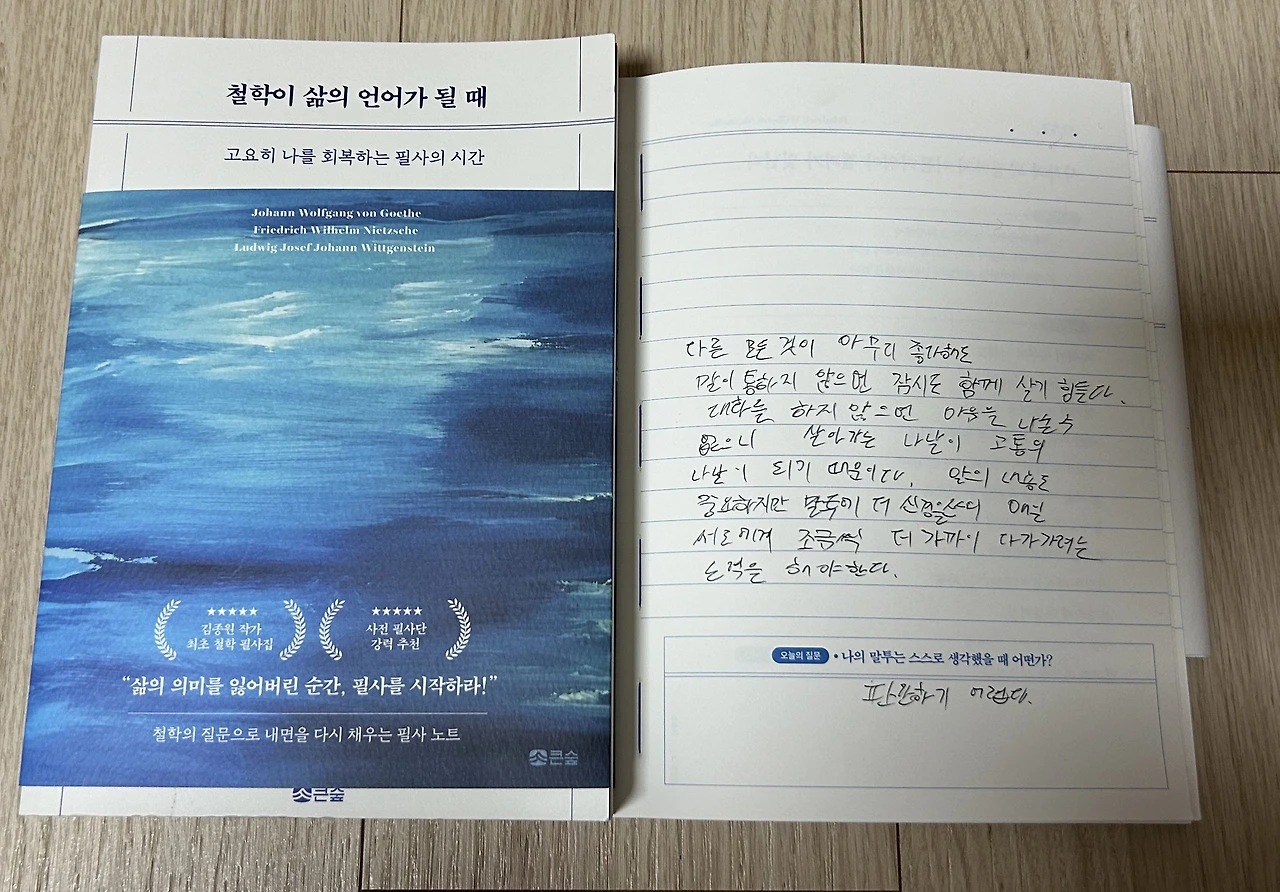 철학이 삶의 언어가 될 때
고요히 나를 회복하는 필사의 시간
Johann Wolfgang von Goethe
Friedrich Wilhelm Nietzsche
Ludwig Josef Johann Wittgenstein
★★★★★
김종원 작가
최초 철학 필사집
★★★★★
사전 필사단
강력 추천
“삶의 의미를 잃어버린 순간, 필사를 시작하라!”
철학의 질문으로 내면을 다시 채우는 필사 노트
큰숲
큰숲
다른 모든 것이 아무리 좋다해도
말이 통하지 않으면 잠시도 함께 살기 힘들다.
대화를 하지 않으면 마음을 나눌수
없으니 살아가는 나날이 고통의
나날이 되기 때문이다. 말의 내용도
중요하지만 말투에 더 신경을쓰며 매일
서로에게 조금씩 더 가까이 다가가려는
노력을 해야한다.
오늘의 질문 • 나의 말투는 스스로 생각했을 때 어떤가?
판단하기 어렵다.